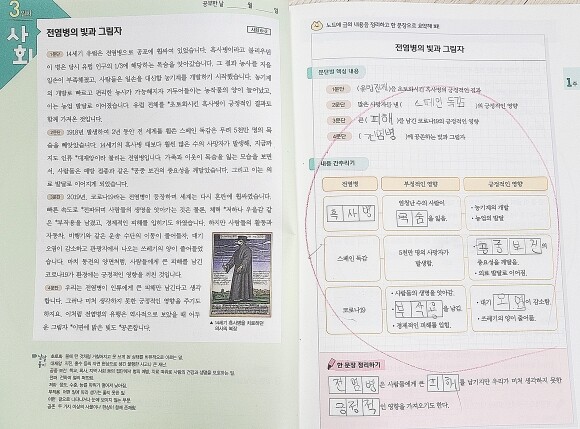 3일
사회
공부한 날 월 일
전염병의 빛과 그림자
1문단 14세기 유럽은 전염병으로 공포에 휩싸여 있었습니다. 흑사병이라고 불리우던
이 병은 당시 유럽 인구의 1/3에 해당하는 목숨을 앗아갔습니다. 그 결과 농사를 지을
일손이 부족해졌고, 사람들은 일손을 대신할 농기계를 개발하기 시작했습니다. 농기계
의 개발로 빠르고 편리한 농사가 가능해지자 거두어들이는 농작물의 양이 늘어났고,
이는 농업 발달로 이어졌습니다. 유럽 전체를 *초토화시킨 흑사병이 긍정적인 결과도
함께 가져온 것입니다.
2문단 1918년 발생하여 2년 동안 전 세계를 휩쓴 스페인 독감은 무려 5천만 명의 목
숨을 빼앗았습니다. 14세기의 흑사병 때보다 훨씬 많은 수의 사망자가 발생해, 지금까
지도 인류 *대재앙이라 불리는 전염병입니다. 가족과 이웃이 목숨을 잃는 모습을 보면
서, 사람들은 예방 접종과 같은 *공중 보건의 중요성을 깨달았습니다. 그리고 이는 의
료 발달로 이어지게 되었습니다.
3문단 2019년, 코로나19라는 전염병이 등장하며 세계는 다시 혼란에 휩싸였습니다.
빠른 속도로 *전파되며 사람들의 생명을 앗아가는 것은 물론,
자동차, 비행기와 같은 운송 수단의 이동이 줄어들자, 대기
오염이 감소하고 관광지에서 나오는 쓰레기의 양이 줄어들었
습니다. 마치 동전의 양면처럼, 사람들에게 큰 피해를 남긴
코로나19가 환경에는 긍정적인 영향을 끼친 것입니다.
4문단 우리는 전염병이 인류에게 큰 피해만 남긴다고 생각
합니다. 그러나 미처 생각하지 못한 긍정적인 영향을 주기도
하지요. 이처럼 전염병의 유행은 역사적으로 보았을 때 어두
운 *그림자 *이면에 밝은 빛도 *공존합니다.
▲ 14세기 흑사병을 치료하던
의사의 복장
노트에 글의 내용을 정리하고 한 문장으로 요약해 봐!
전염병의 빛과 그림자
1주
문단별 핵심 내용
1문단
초토화시킨 흑사병의 긍정적인 결과
2문단 많은 사망자를 낸 ( 스페인 독감 )의 긍정적인 영향
3문단 큰 ( 피해 )를 남긴 코로나19의 긍정적인 영향
4문단 ( 전염병 )에 공존하는 빛과 그림자
내용 간추리기
전염병 부정적인 영향 긍정적인 영향
흑사병
엄청난 수의 사람이
목숨을 잃음.
• 농기계의 개발
• 농업의 발달
스페인 독감
5천만 명의 사망자가
발생함.
• 공중 보건의
중요성을 깨달음.
• 의료 발달로 이어짐.
코로나19
• 사람들의 생명을 앗아감.
• 부작용을 남김.
• 경제적인 피해를 입힘.
• 대기 오염이 감소함.
• 쓰레기의 양이 줄어듦.
한 문장 정리하기
전염병은 사람들에게 큰 피해를 남기지만 우리가 미처 생각하지 못한
긍정적인 영향을 가져오기도 한다.